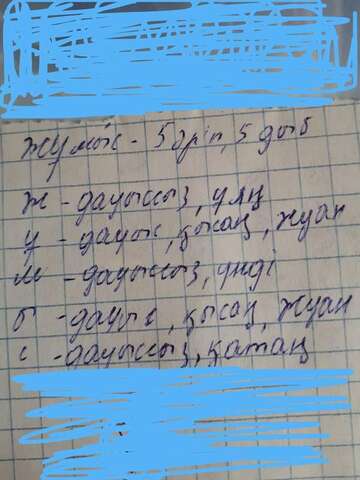 жұмыс - 5 әріп, 5 дыб
ж - дауыссыз, ұяң
ұ - дауыс, қысаң, жуан
м - дауыссыз, үнді
ы - дауыс, қысаң, жуан
с - дауыссыз, қатаң